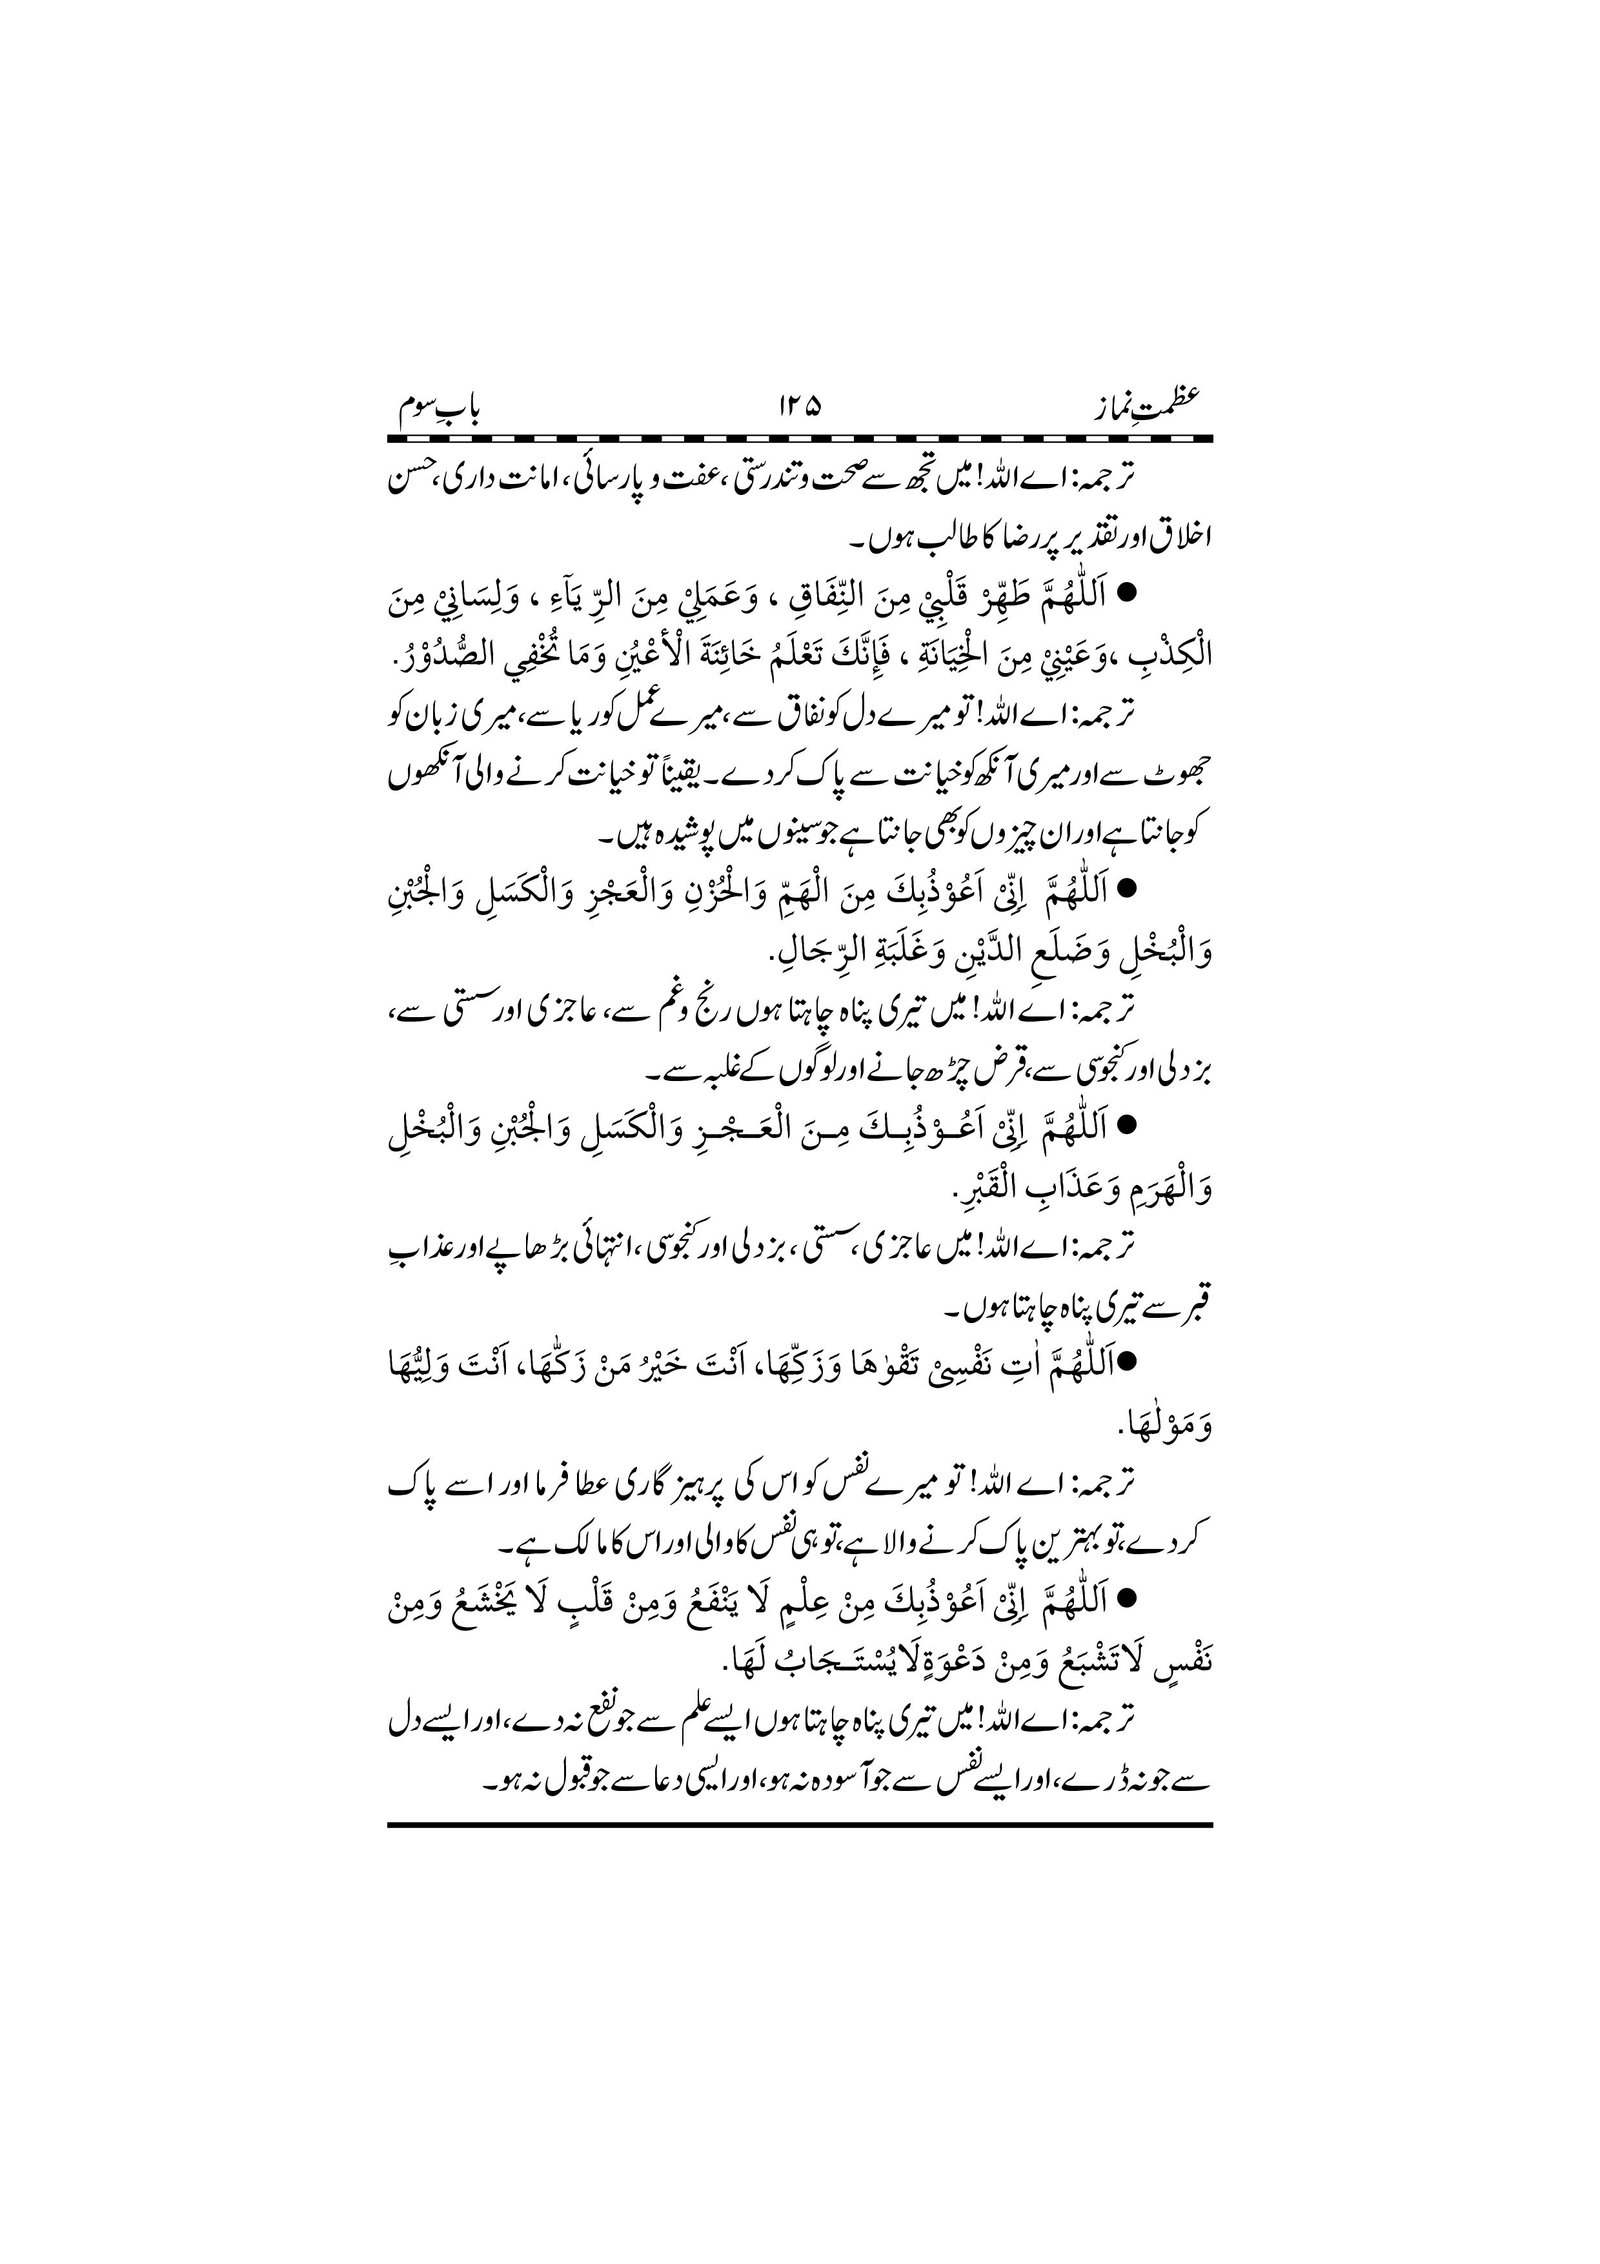 عظمتِ نماز ۱۲۵ بابِ سوم
ترجمہ: اے اللہ! میں تجھ سے صحت و تندرستی، عفت و پارسائی، امانت داری، حسن
اخلاق اور تقدیر پر رضا کا طالب ہوں۔
● اَللّٰهُمَّ طَهِّرْ قَلْبِيْ مِنَ النِّفَاقِ ، وَعَمَلِيْ مِنَ الرِّيَآءِ ، وَلِسَانِيْ مِنَ
الْكِذْبِ ،وَعَيْنِيْ مِنَ الْخِيَانَةِ ، فَإِنَّكَ تَعْلَمُ خَائِنَةَ الْأَعْيُنِ وَمَا تُخْفِي الصُّدُوْرُ.
ترجمہ: اے اللہ! تو میرے دل کو نفاق سے، میرے عمل کو ریا سے، میری زبان کو
جھوٹ سے اور میری آنکھ کو خیانت سے پاک کردے۔ یقیناً تو خیانت کرنے والی آنکھوں
کو جانتا ہے اور ان چیزوں کو بھی جانتا ہے جو سینوں میں پوشیدہ ہیں۔
● اَللّٰهُمَّ اِنِّیْ اَعُوْذُبِكَ مِنَ الْهَمِّ وَالْحُزْنِ وَالْعَجْزِ وَالْكَسَلِ وَالْجُبْنِ
وَالْبُخْلِ وَضَلَعِ الدَّيْنِ وَغَلَبَةِ الرِّجَالِ.
ترجمہ: اے اللہ! میں تیری پناہ چاہتا ہوں رنج و غم سے، عاجزی اور سستی سے،
بزدلی اور کنجوسی سے، قرض چڑھ جانے اور لوگوں کے غلبہ سے۔
● اَللّٰهُمَّ اِنِّیْ اَعُوْذُبِكَ مِنَ الْعَجْزِ وَالْكَسَلِ وَالْجُبْنِ وَالْبُخْلِ
وَالْهَرَمِ وَعَذَابِ الْقَبْرِ.
ترجمہ: اے اللہ! میں عاجزی، سستی، بزدلی اور کنجوسی، انتہائی بڑھاپے اور عذابِ
قبر سے تیری پناہ چاہتا ہوں۔
●اَللّٰهُمَّ اٰتِ نَفْسِیْ تَقْوٰهَا وَزَكِّهَا، اَنْتَ خَيْرُ مَنْ زَكّٰهَا، اَنْتَ وَلِيُّهَا
وَمَوْلٰهَا.
ترجمہ: اے اللہ! تو میرے نفس کو اس کی پرہیز گاری عطا فرما اور اسے پاک
کردے، تو بہترین پاک کرنے والا ہے، تو ہی نفس کا والی اور اس کا مالک ہے۔
● اَللّٰهُمَّ اِنِّیْ اَعُوْذُبِكَ مِنْ عِلْمٍ لَا يَنْفَعُ وَمِنْ قَلْبٍ لَا يَخْشَعُ وَمِنْ
نَفْسٍ لَاتَشْبَعُ وَمِنْ دَعْوَةٍ لَايُسْتَجَابُ لَهَا.
ترجمہ: اے اللہ! میں تیری پناہ چاہتا ہوں ایسے علم سے جو نفع نہ دے، اور ایسے دل
سے جو نہ ڈرے، اور ایسے نفس سے جو آسودہ نہ ہو، اور ایسی دعا سے جو قبول نہ ہو۔